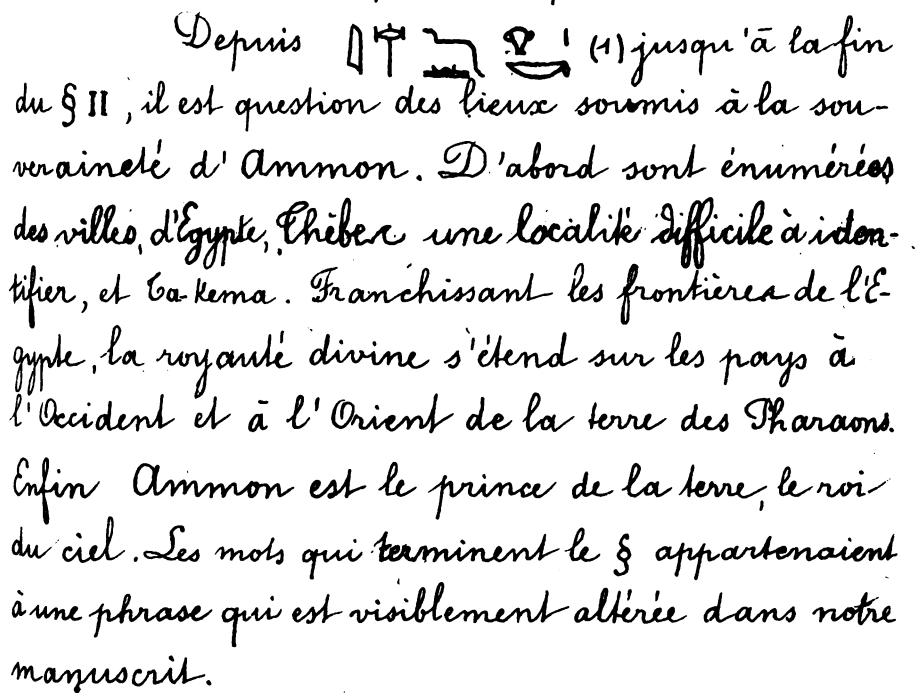 Depuis (1) jusqu'à la fin
du § II, il est question des lieux soumis à la sou-
veraineté d'Ammon. D'abord sont énumérées
des villes d'Egypte, Thèbes une localité difficile à iden-
tifier, et Ta-Kema. Franchissant les frontières de l'E-
gypte, la royauté divine s'étend sur les pays à
l'Occident et à l'Orient de la terre des Pharaons.
Enfin Ammon est le prince de la terre, le roi
du ciel. Les mots qui terminent le § appartenaient
à une phrase qui est visiblement altérée dans notre
manuscrit.